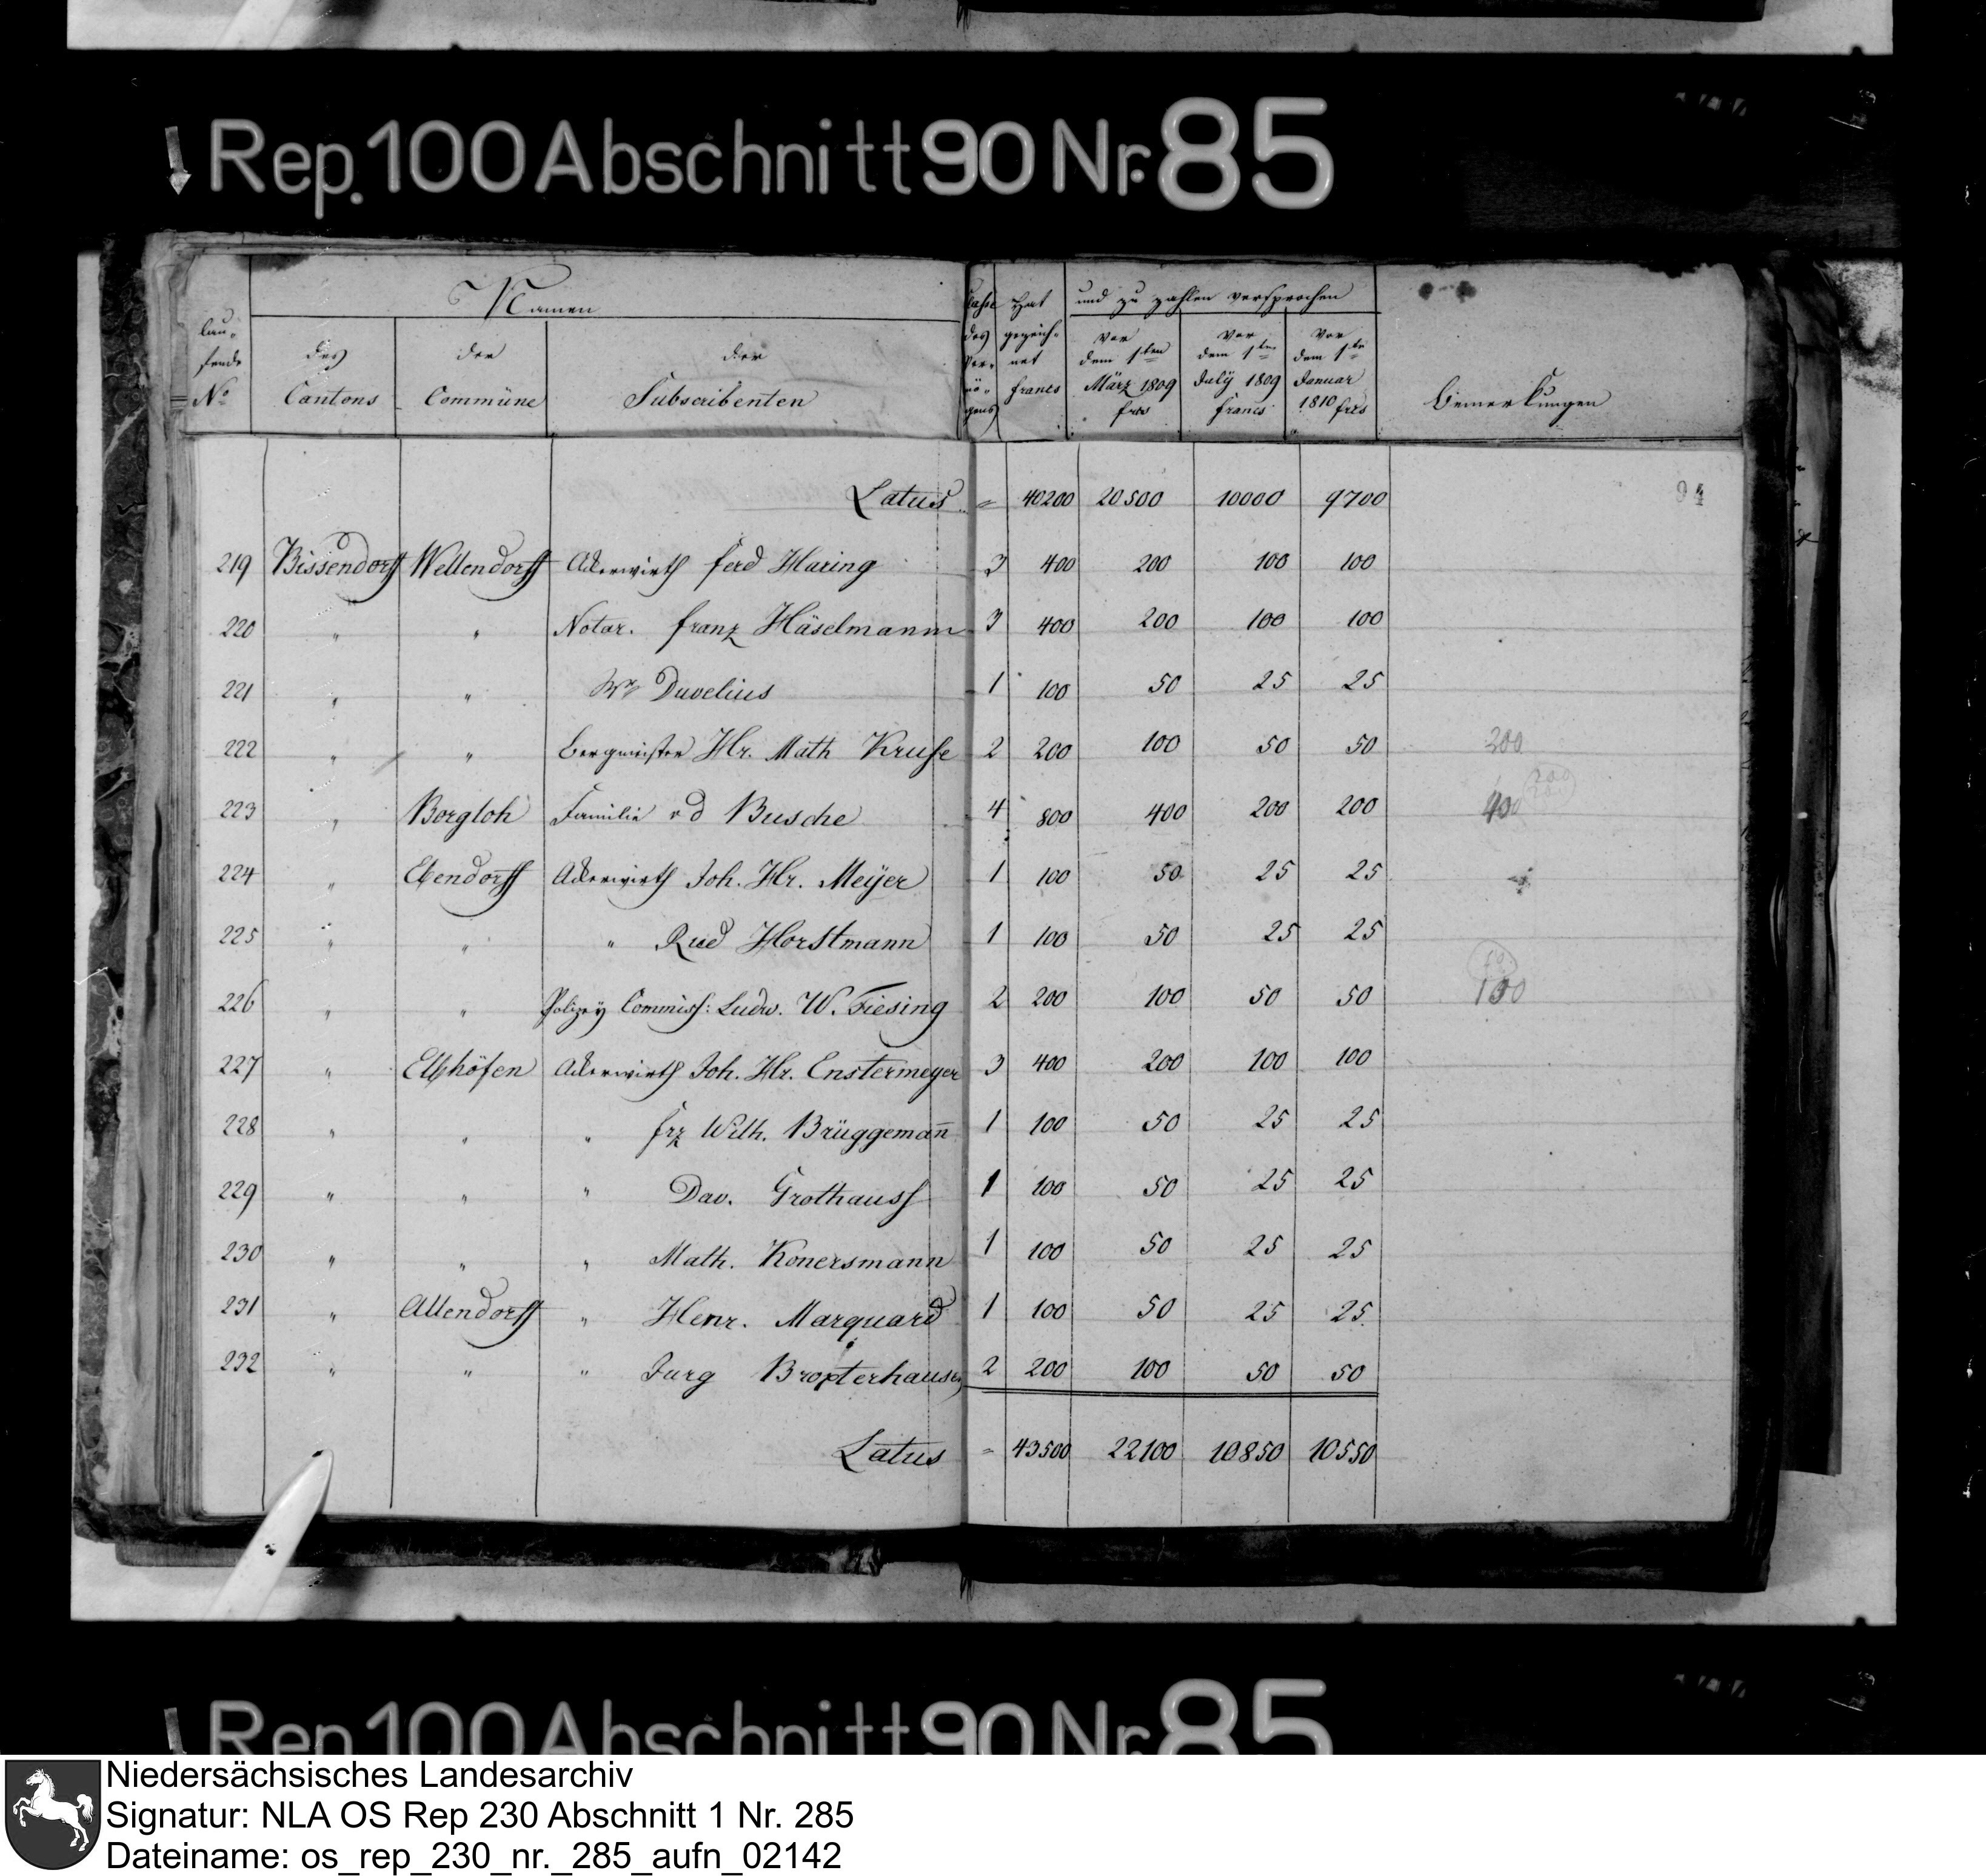 Rep. 100 Abschnitt 90 Nr. 85
Namen
lau-
fende
No
des
Cantons
der
Commüne
der
Subscribenten
Classe
des
Ver-
mö-
gens
Hat
gezeich-
net
francs
und zu zahlen versprochen
vor
dem 1ten
März 1809
frcs
vor
dem 1ten
July 1809
francs
vor
dem 1te
Januar
1810 frcs
Bemerkungen
94
Latus = 40200 20500 10000 9700
219 Bissendorff Wellendorff Ackerwirth ferd Haring 3 400 200 100 100
220 " " Notar. franz Häselmann 3 400 200 100 100
221 " " Duvelius 1 100 50 25 25
222 " " Bergmeister Hr. Math Kruse 2 200 100 50 50 200
223 " Borgloh Familie v d Busche 4 800 400 200 200 400
224 " Ebendorff Ackerwirth Joh. Hr. Meÿer 1 100 50 25 25
225 " " " Rud Horstmann 1 100 50 25 25
226 " " Polizey Commiss: Ludw. W. Fiesing 2 200 100 50 50 100
227 " Ackerwirth Joh. Hr. Enstermeyer 3 400 200 100 100
228 " " " frz Wilh. Brüggemañ 1 100 50 25 25
229 " " " Dav. Grothauss 1 100 50 25 25
230 " " " Math. Konersmann 1 100 50 25 25
231 " Allendorff " Henr. Marquard 1 100 50 25 25
232 " " " Jurg Broxterhausen 2 200 100 50 50
Latus = 43500 22100 10850 10550
Rep. 100 Abschnitt 90 Nr. 85
Niedersächsisches Landesarchiv
Signatur: NLA OS Rep 230 Abschnitt 1 Nr. 285
Dateiname: os_rep_230_nr._285_aufn_02142